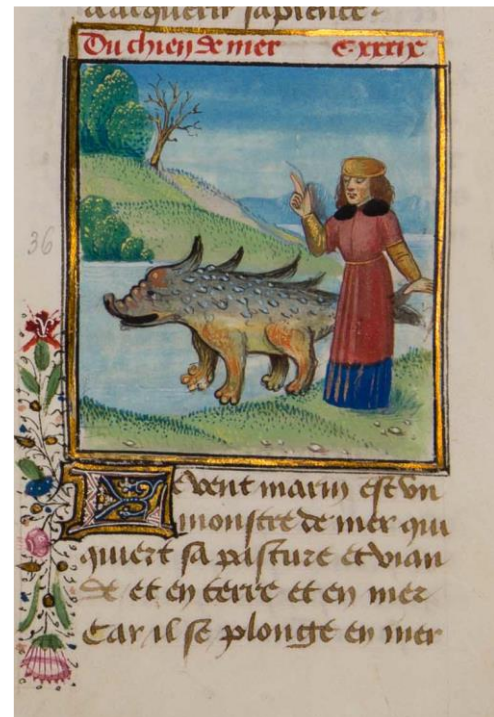 dacquerir sapience
Du chien de mer C xxxix
36
Levent marin est vn
monstre de mer qui
quiert sa pasture et vian
de et en terre et en mer
Car il se plonge en mer